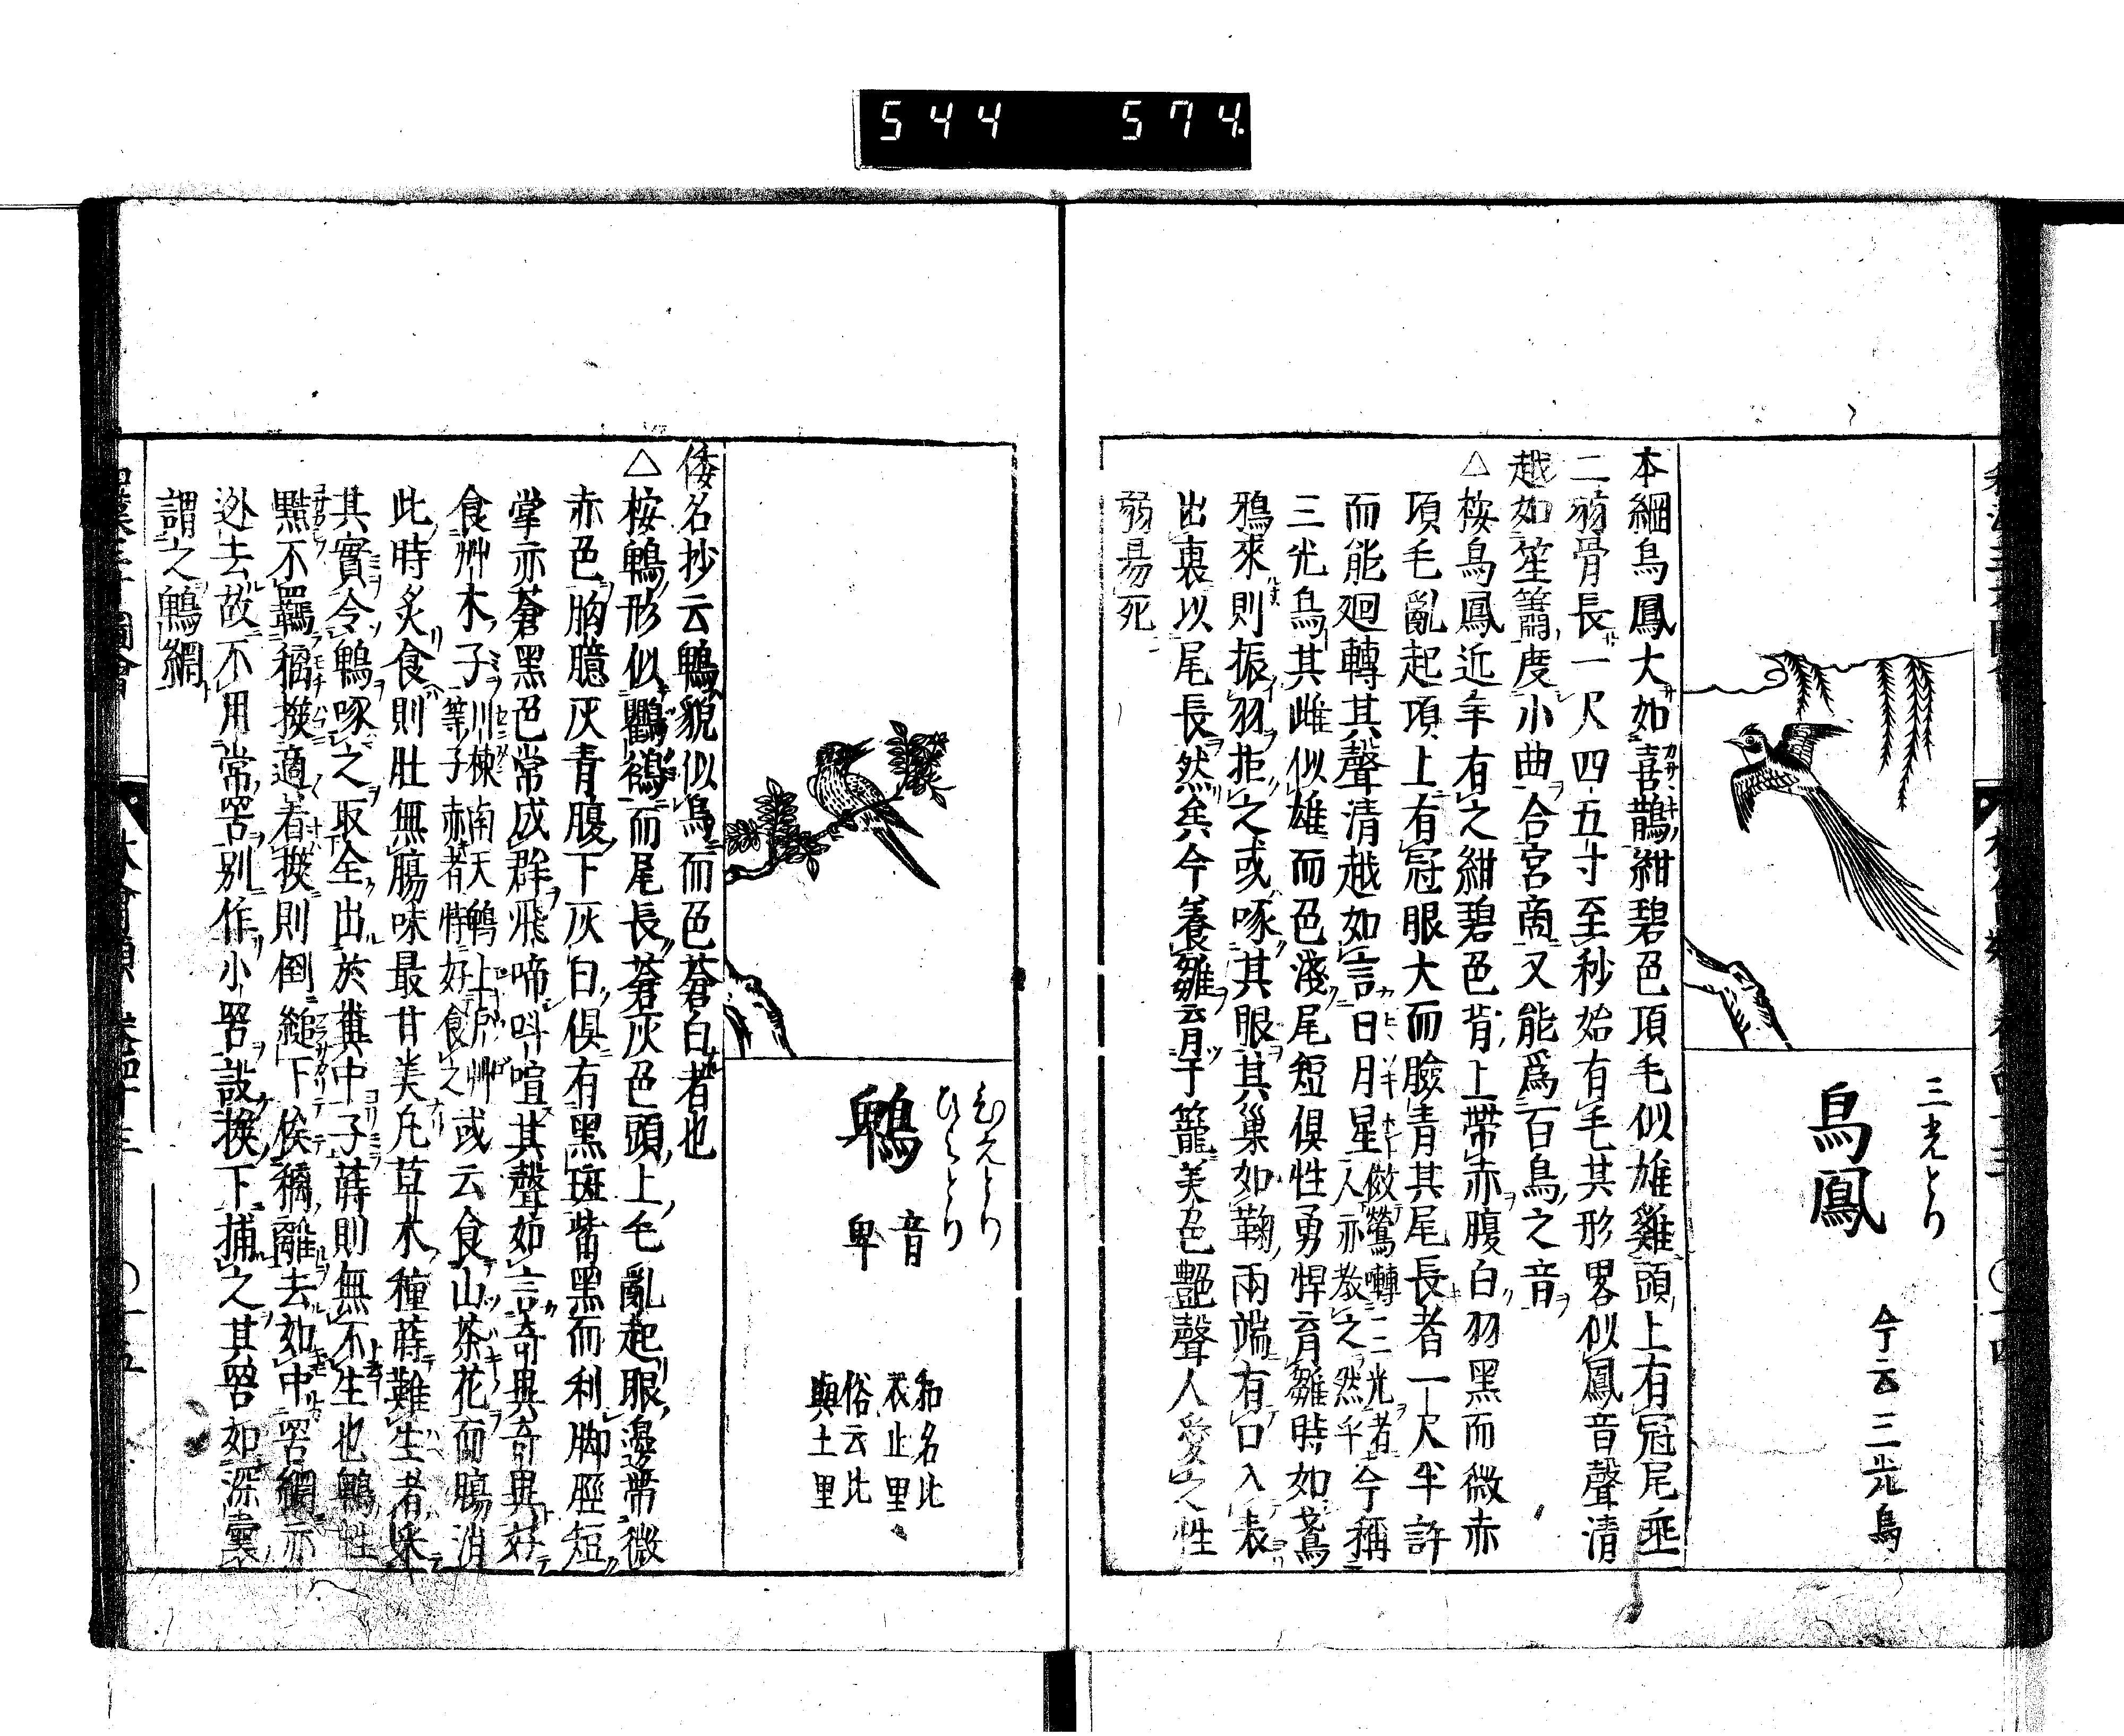 544 574
三光とり
鳥鳳
今云三光鳥
本綱鳥鳳大如喜鵲紺碧色項毛似雄雞頭上有冠尾垂
二弱骨長一尺四五寸至秒始有毛其形畧似鳳音聲清
越如笙簫度小曲合宮商又能爲百鳥之音
△桉鳥鳳近年有之紺碧色背上帶赤腹白羽黑而微赤
項毛亂起項上有冠眼大而臉青其尾長者一尺半許
而能廻轉其聲清越如言日月星倣鶯囀三光者人亦敎之然乎今稱
三光鳥其雌似雄而色淺尾短俱性勇悍育雛時如鳶
鴉來則振羽拒之或啄其眼其巢如鞠兩端有口入表
出裏以尾長然矣今養雛云月于籠美色艷聲人愛之性
弱易死
ひえとり
ひよとり
鵯
音
卑
和名比
衣止里
俗云比
與土里
倭名抄云鵯貌似烏而色蒼白者也
△桉鵯形似鸜鵒而尾長蒼灰色頭上毛亂起眼邊帶微
赤色胸臆灰青腹下灰白俱有黑斑觜黑而利脚脛短
掌亦蒼黑色常成群飛啼叫喧其聲如言奇異奇異好
食艸木子川楝南天鵯上戸艸等子赤者特好食之或云食山茶花而腸消
此時炙食則肚無腸味最甘美凡草木種蒔難生者采
其實令鵯啄之取全出於糞中子蒔則無不生也鵯性
黠不羅稱擌適着擌則倒縋下俟稱離去如中罟網亦
迯去故不用常罟別作小罟設擌下捕之其罟如深囊
謂之鵯網